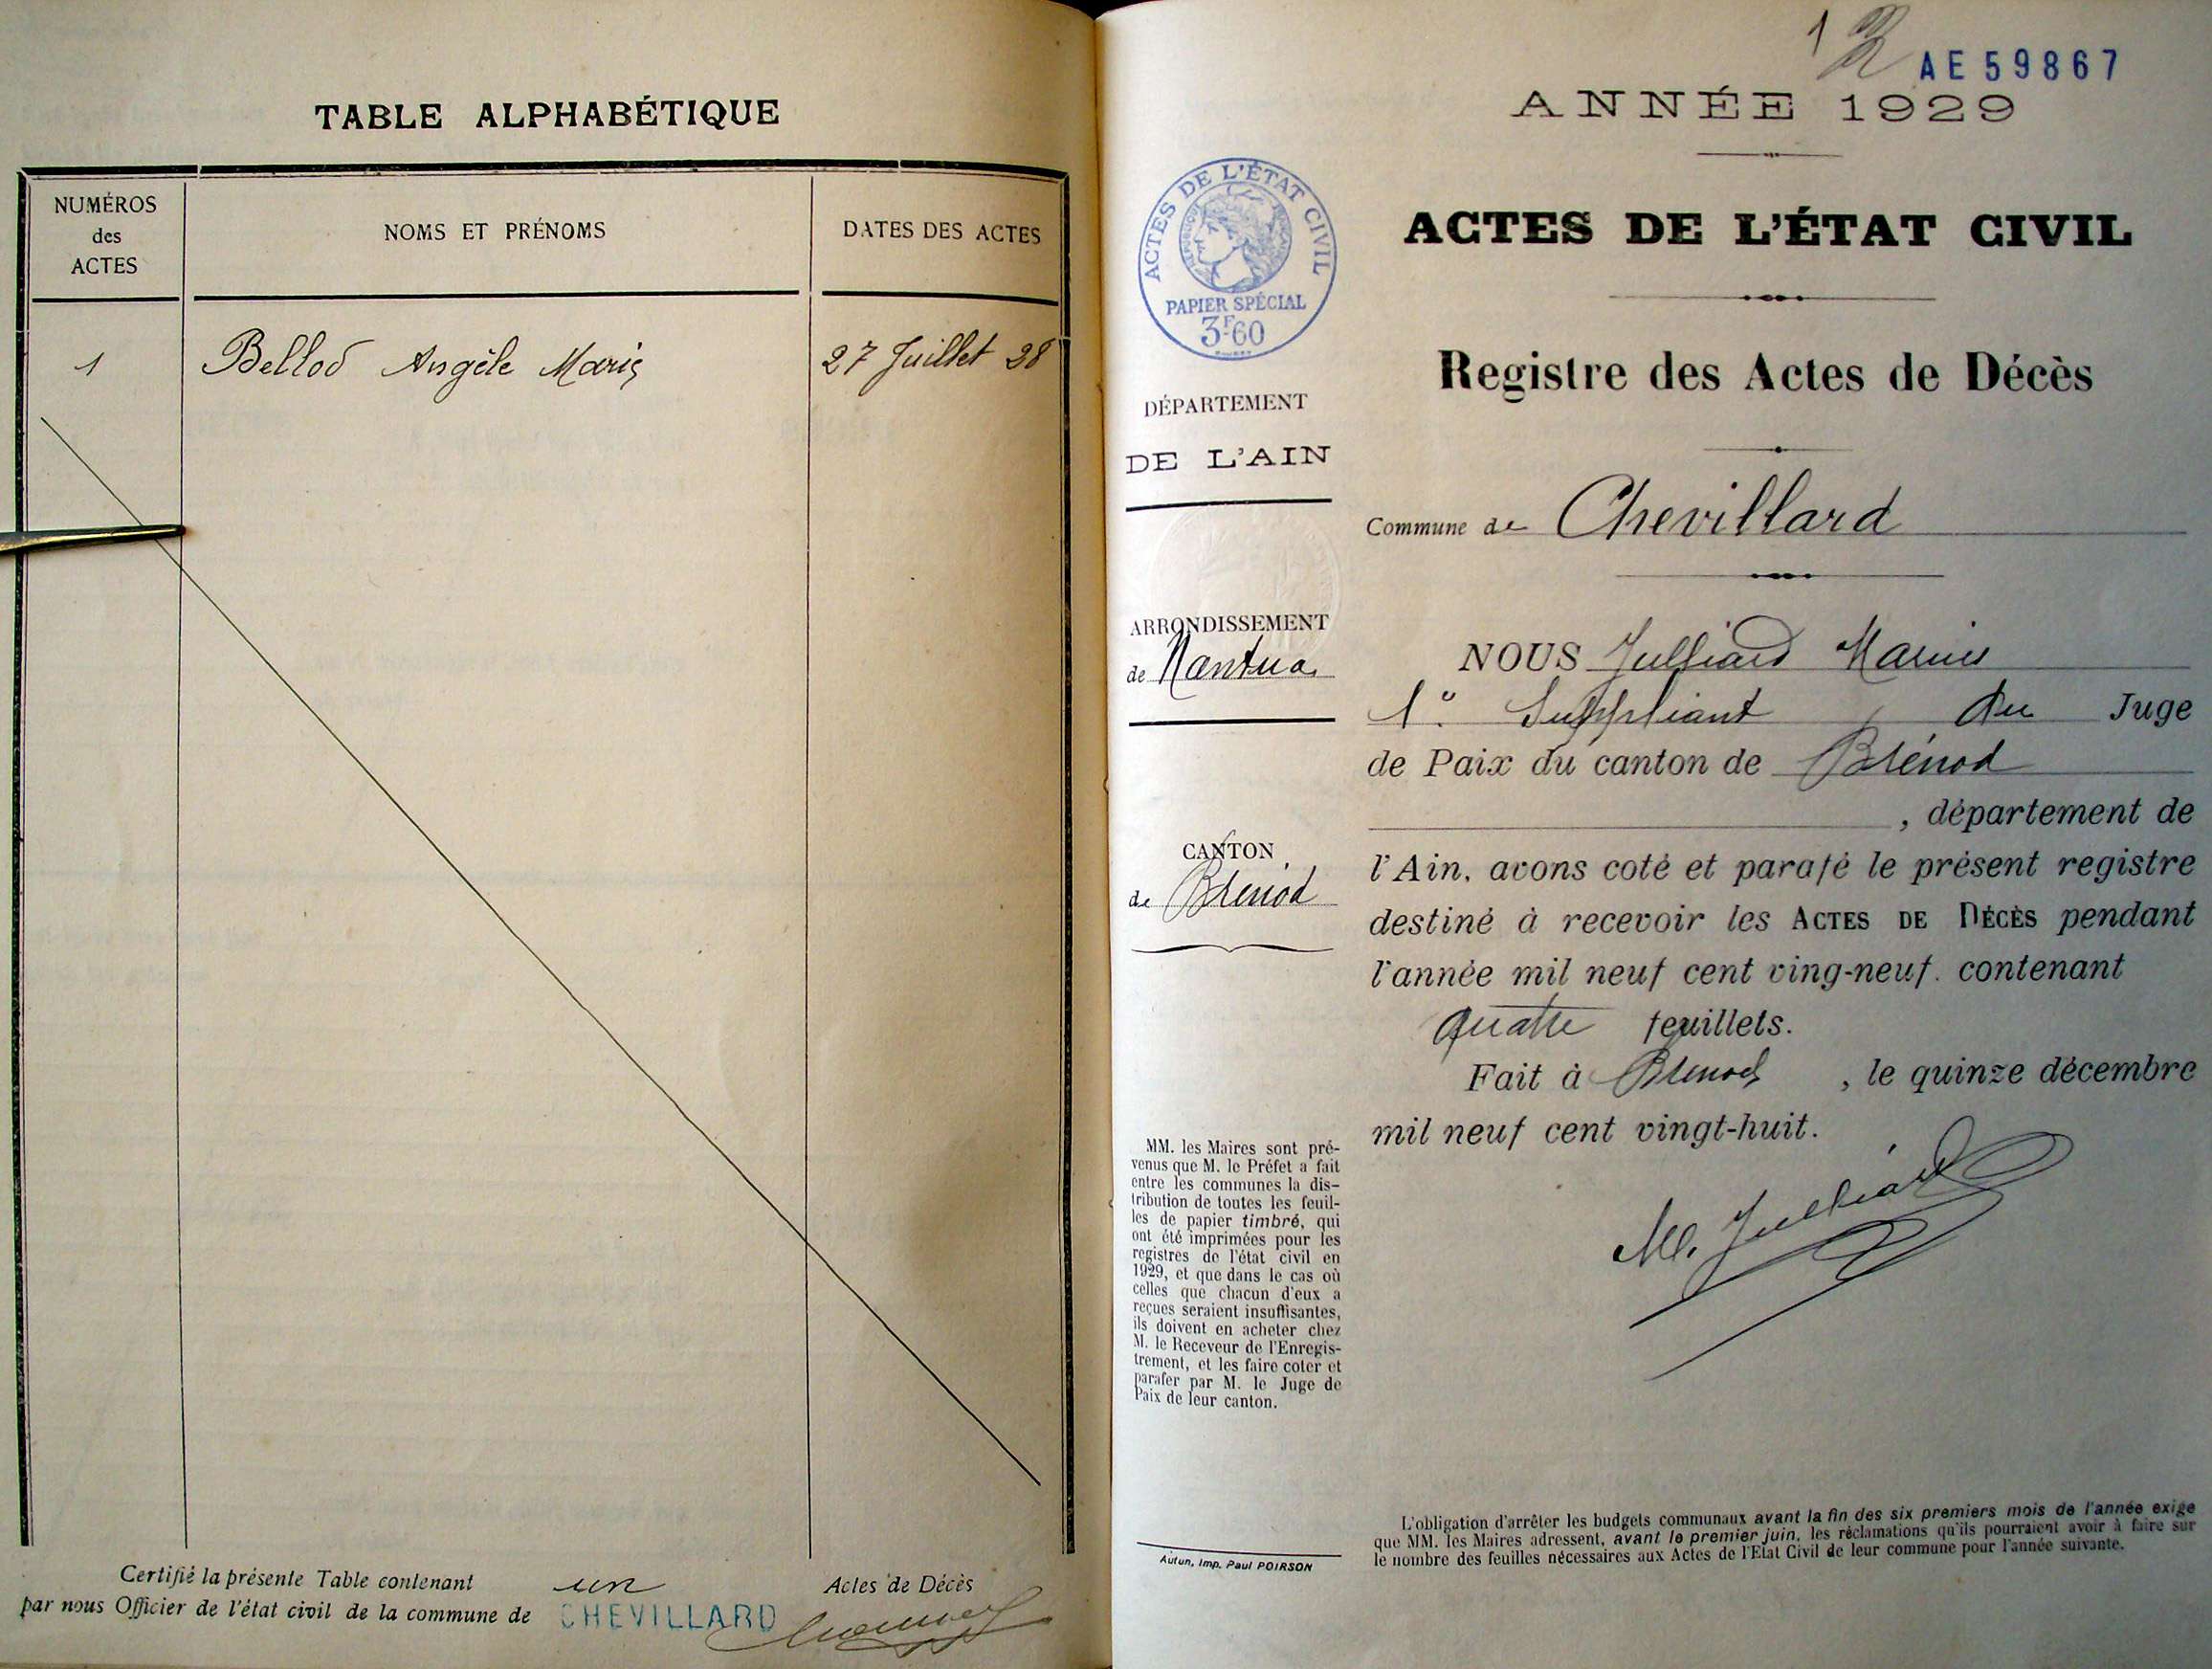 TABLE ALPHABÉTIQUE
NUMÉROS
des
ACTES
NOMS ET PRÉNOMS
DATES DES ACTES
1 Bellod Angèle Marie 27 Juillet 28
Certifié la présente Table contenant un Actes de Décès
par nous Officier de l'état civil de la commune de CHEVILLARD
1
AE59867
ANNÉE 1929
ACTES DE L'ÉTAT CIVIL
PAPIER SPÉCIAL
3F60
DÉPARTEMENT
DE L'AIN
ARRONDISSEMENT
de Nantua
CANTON
de Brénod
MM. les Maires sont pré-
venus que M. le Préfet a fait
entre les communes la dis-
tribution de toutes les feuil-
les de papier timbré, qui
ont été imprimées pour les
registres de l'état civil en
1929, et que dans le cas où
celles que chacun d'eux a
reçues seraient insuffisantes,
ils doivent en acheter chez
M. le Receveur de l'Enregis-
trement, et les faire coter et
parafer par M. le Juge de
Paix de leur canton.
Autun, Imp. Paul POIRSON
ACTES DE L'ÉTAT CIVIL
Registre des Actes de Décès
Commune de Chevillard
NOUS Julliard Marius
1er Suppléant du Juge
de Paix du canton de Brénod
, département de
l'Ain, avons coté et parafé le présent registre
destiné à recevoir les ACTES DE DÉCÈS pendant
l'année mil neuf cent ving-neuf. contenant
quatre feuillets.
Fait à Brénod, le quinze décembre
mil neuf cent vingt-huit.
M. Julliard
L'obligation d'arrêter les budgets communaux avant la fin des six premiers mois de l'année exige
que MM. les Maires adressent, avant le premier juin, les réclamations qu'ils pourraient avoir à faire sur
le nombre des feuilles nécessaires aux Actes de l'Etat Civil de leur commune pour l'année suivante.